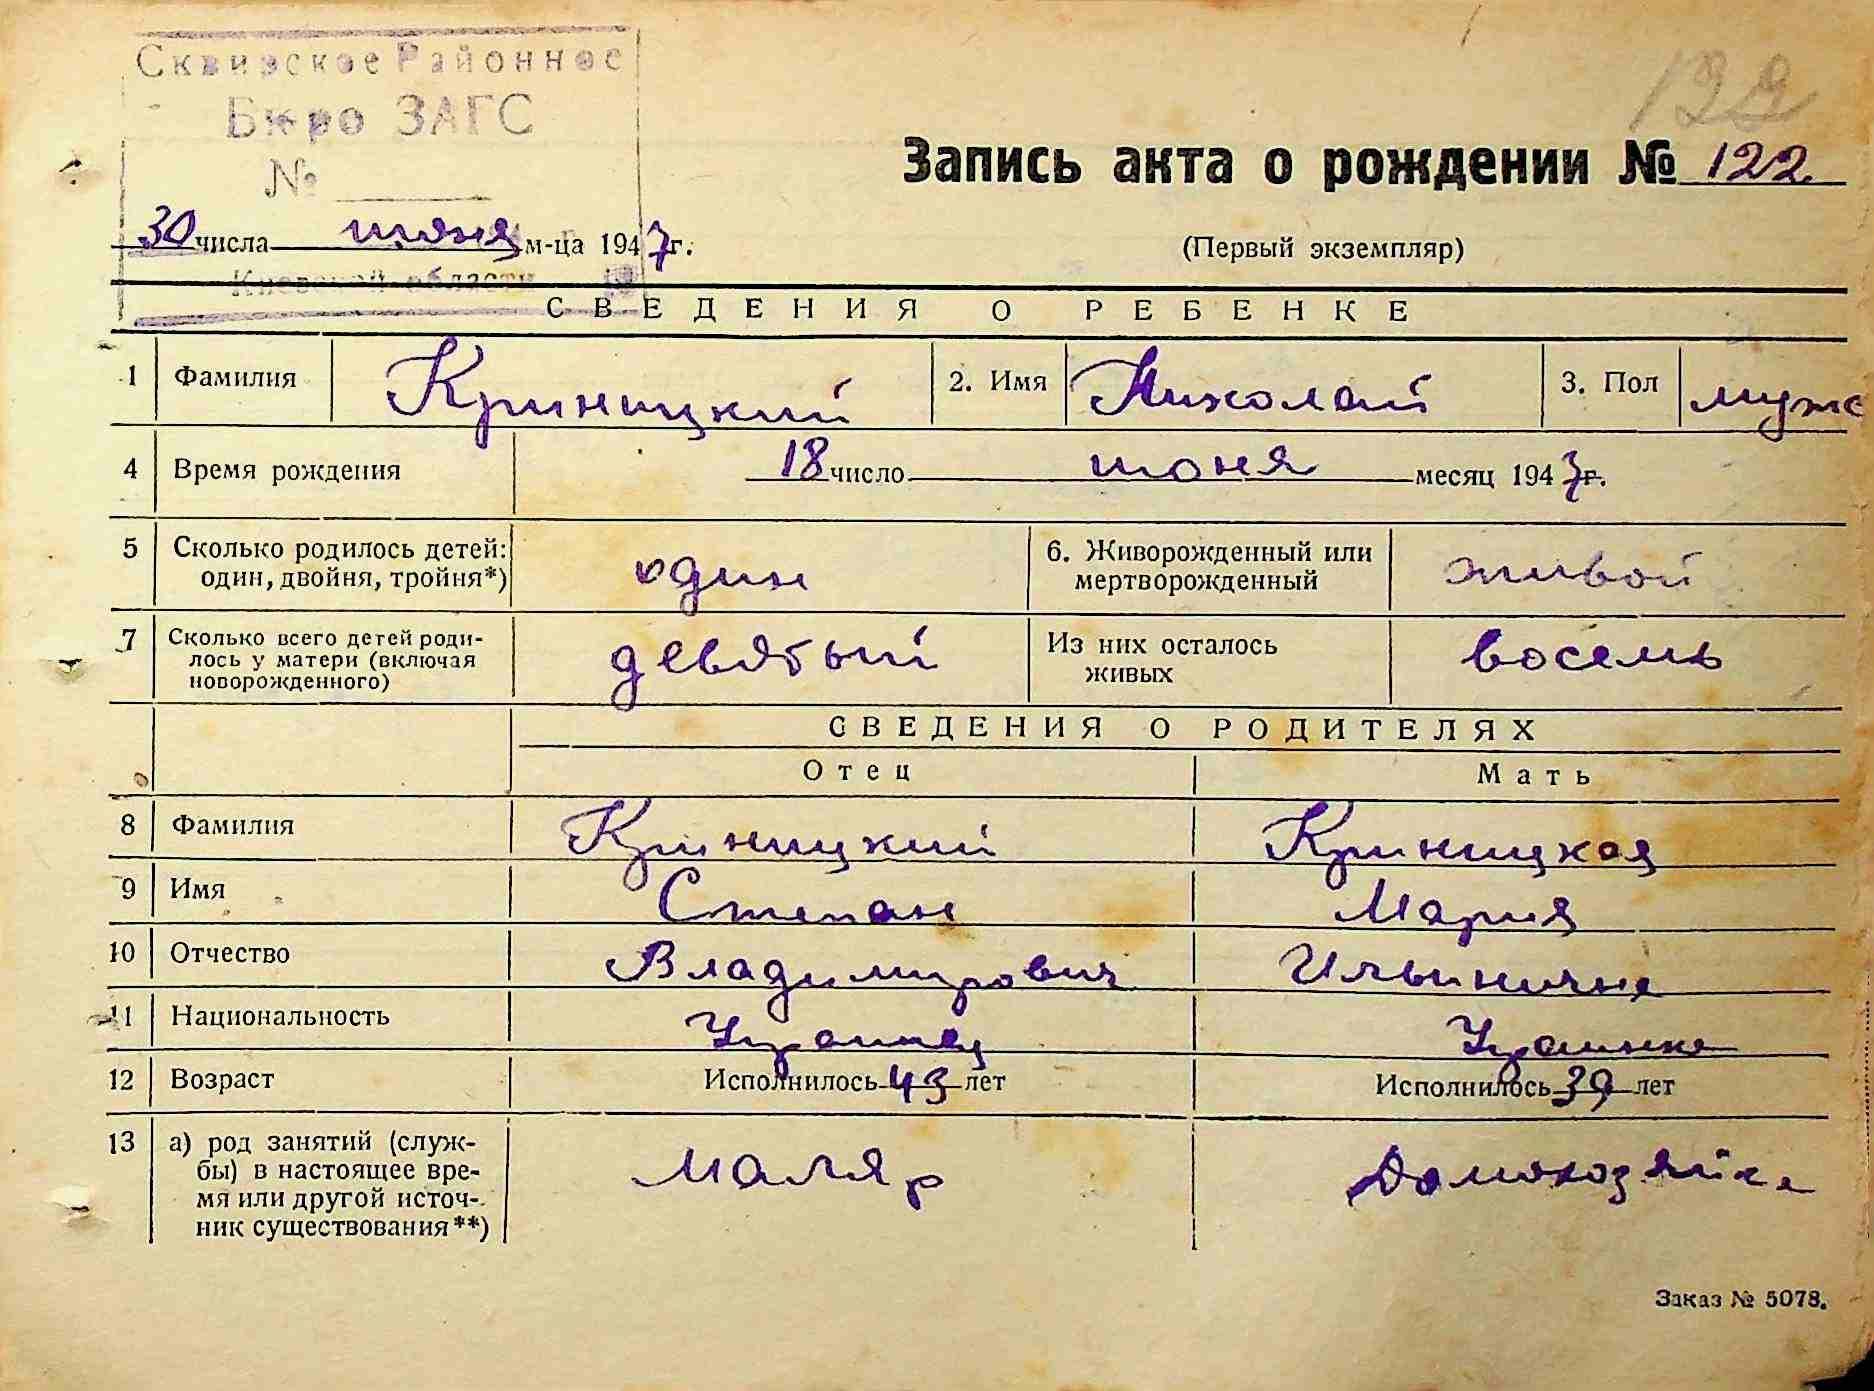 Сквирское Районное
Бюро ЗАГС
№
Киевской области
122
Запись акта о рождении № 122
30 числа июня м-ца 1947г.
(Первый экземпляр)
СВЕДЕНИЯ О РЕБЕНКЕ
1 Фамилия Криницкий 2. Имя Николай 3. Пол муж
4 Время рождения 18 число июня месяц 1947г.
5 Сколько родилось детей: один, двойня, тройня*) один 6. Живорожденный или мертворожденный живой
7 Сколько всего детей роди-
лось у матери (включая
новорожденного) девятый Из них осталось живых восемь
СВЕДЕНИЯ О РОДИТЕЛЯХ
Отец Мать
8 Фамилия Криницкий Криницкая
9 Имя Степан Мария
10 Отчество Владимирович Ильинична
11 Национальность Украинец Украинка
12 Возраст Исполнилось 43 лет Исполнилось 39 лет
13 а) род занятий (служ-
бы) в настоящее вре-
мя или другой источ-
ник существования**) маляр Домохозяйка
Заказ № 5078.